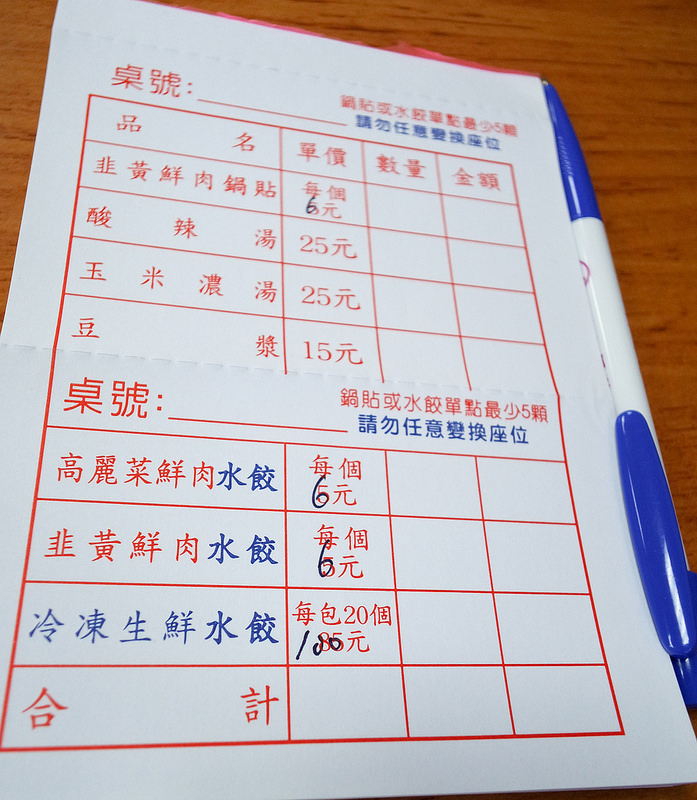 桌號:
鍋貼或水餃單點最少5顆
請勿任意變換座位
品名 單價 數量 金額
韭黃鮮肉鍋貼 每個 6元
酸辣湯 25元
玉米濃湯 25元
豆漿 15元
桌號:
鍋貼或水餃單點最少5顆
請勿任意變換座位
高麗菜鮮肉水餃 每個 6元
韭黃鮮肉水餃 每個 6 5元
冷凍生鮮水餃 每包20個 100 85元
合計